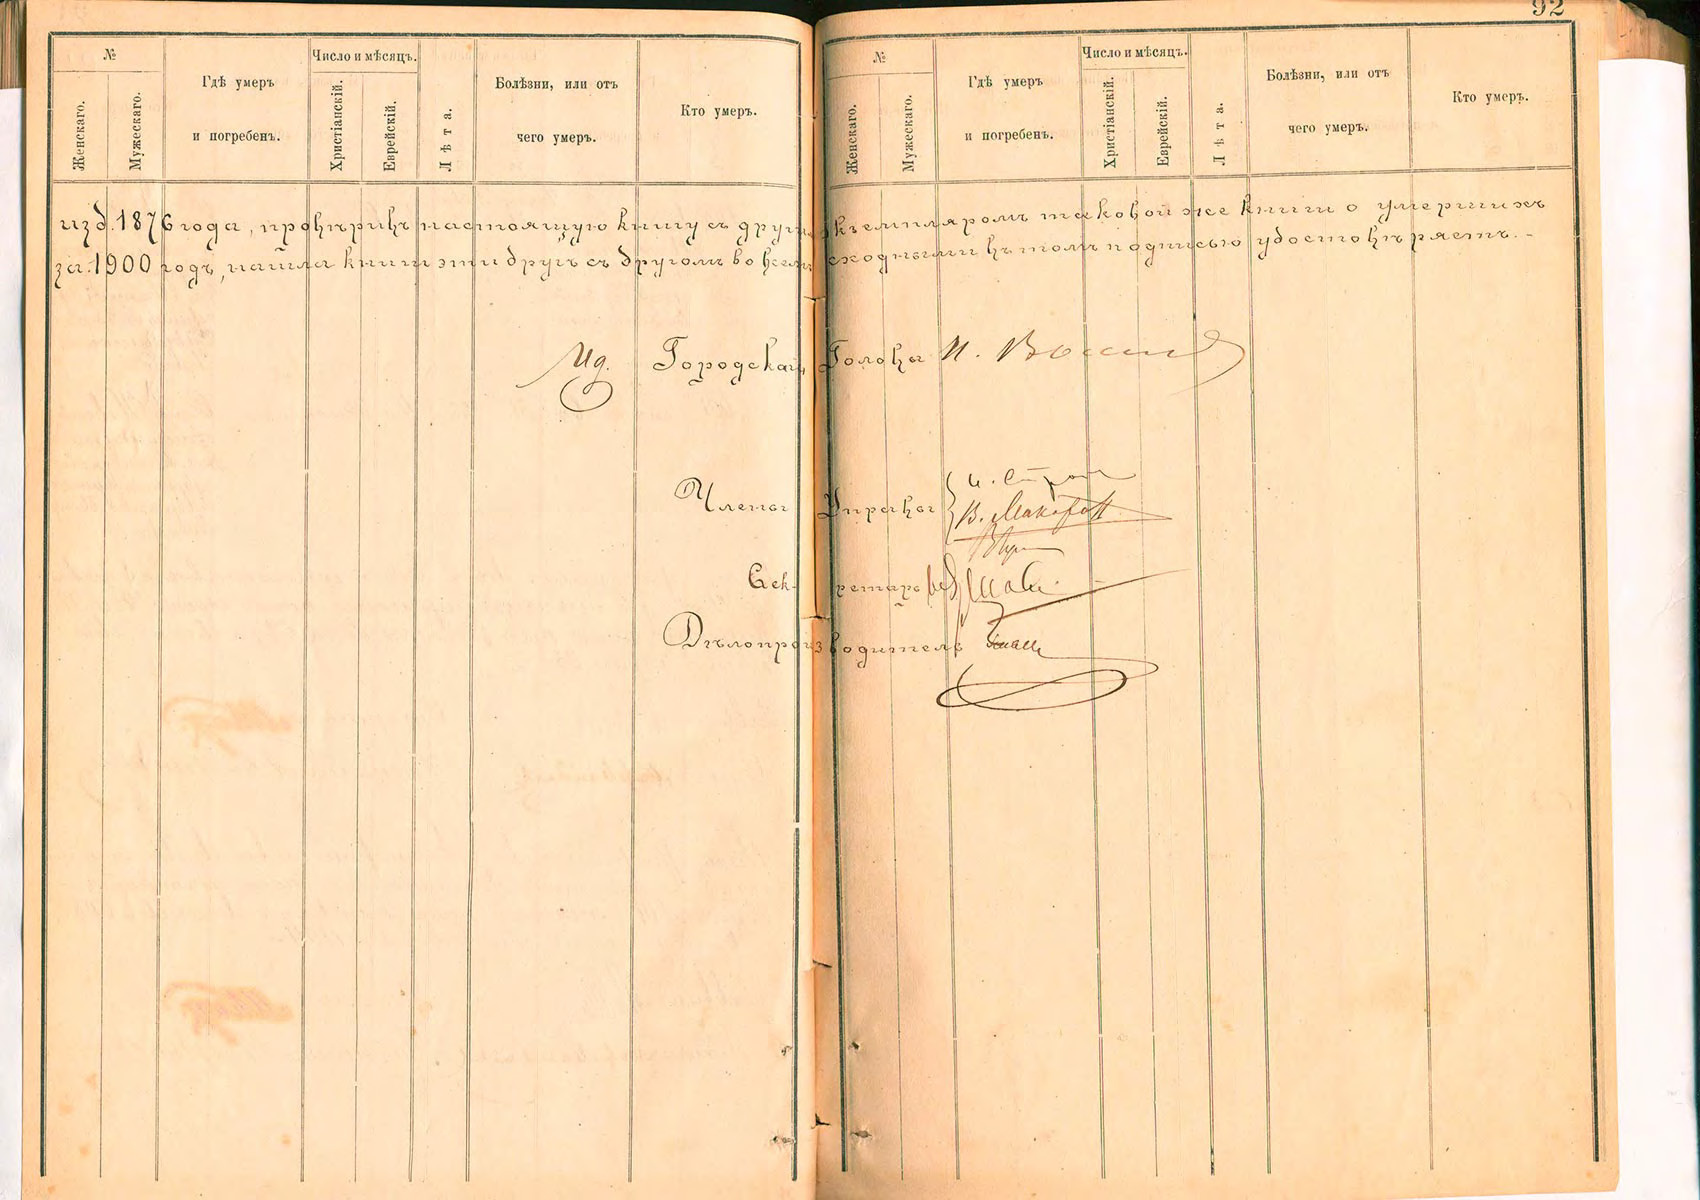 92
№
Женскаго.
Мужескаго.
Гдѣ умеръ
и погребенъ.
Число и мѣсяцъ.
Христіанскій.
Еврейскій.
Лѣта.
Болѣзни, или отъ
чего умеръ.
Кто умеръ.
№
Женскаго.
Мужескаго.
Гдѣ умеръ
и погребенъ.
Число и мѣсяцъ.
Христіанскій.
Еврейскій.
Лѣта.
Болѣзни, или отъ
чего умеръ.
Кто умеръ.
изд. 1876 года, провѣривъ настоящую книгу съ другимъ экземпляромъ таковой же книги о умершихъ
за 1900 годъ, нашла книги эти другъ съ другомъ во всемъ сходными въ томъ подписью удостовѣряетъ.
Городской Голова И.
Члены Управы
В.
Секретарь
Дѣлопроизводитель